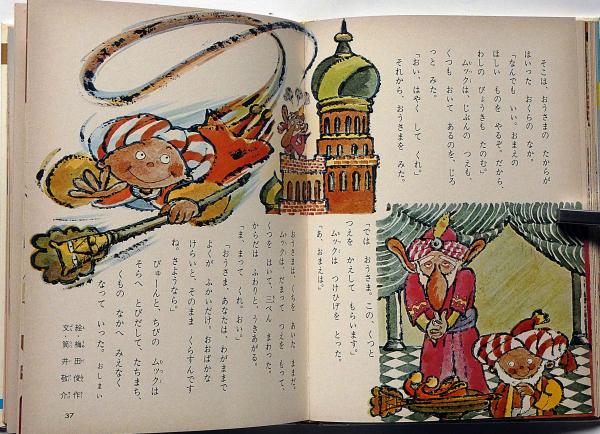 そこは、おうさまの たからが
はいった おくらの なか。
「なんでも いい。おまえの
ほしい ものを やるぞ。だから、
わしの びょうきも たのむ。」
ムックは、じぶんの つえも、
くつも おいて あるのを、じろ
っと みた。
「おい、はやく して くれ。」
それから、おうさまを みた。
「では おうさま。この くつと
つえを かえして もらいます。」
ムックは つけひげを とった。
「あ、おまえは。」
おうさまは、くちを あいた ままだ。
ムックは だまって つえを もって、
くつを はいて、三べん まわった。
からだは ふわりと、うきあがる。
「ま、まって くれ。おい。」
「おうさま、あなたは、わがままで
よくが ふかいだけ。おおばかな
けらいと、そのまま くらすんです
ね。さようなら。」
ぴゅーんと、ちびの ムックは
そらへ とびだして、たちまち、
くもの なかへ みえなく
なって いった。 おしまい
絵・梅田俊作
文・筒井敬介
37